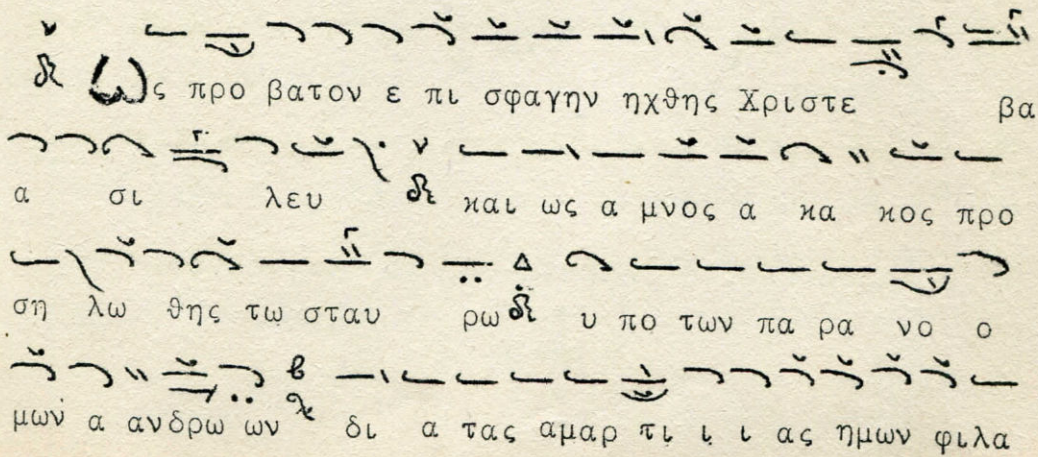 Ως προ βατον ε πι σφαγην ηχθης Χριστε βα
α σι λευ και ως α μνος α κα κος προ
ση λω θης τω σταυ ρω υ πο των πα ρα νο ο
μων α ανδρω ων δι α τας αμαρ τι ι ι ας ημων φιλα